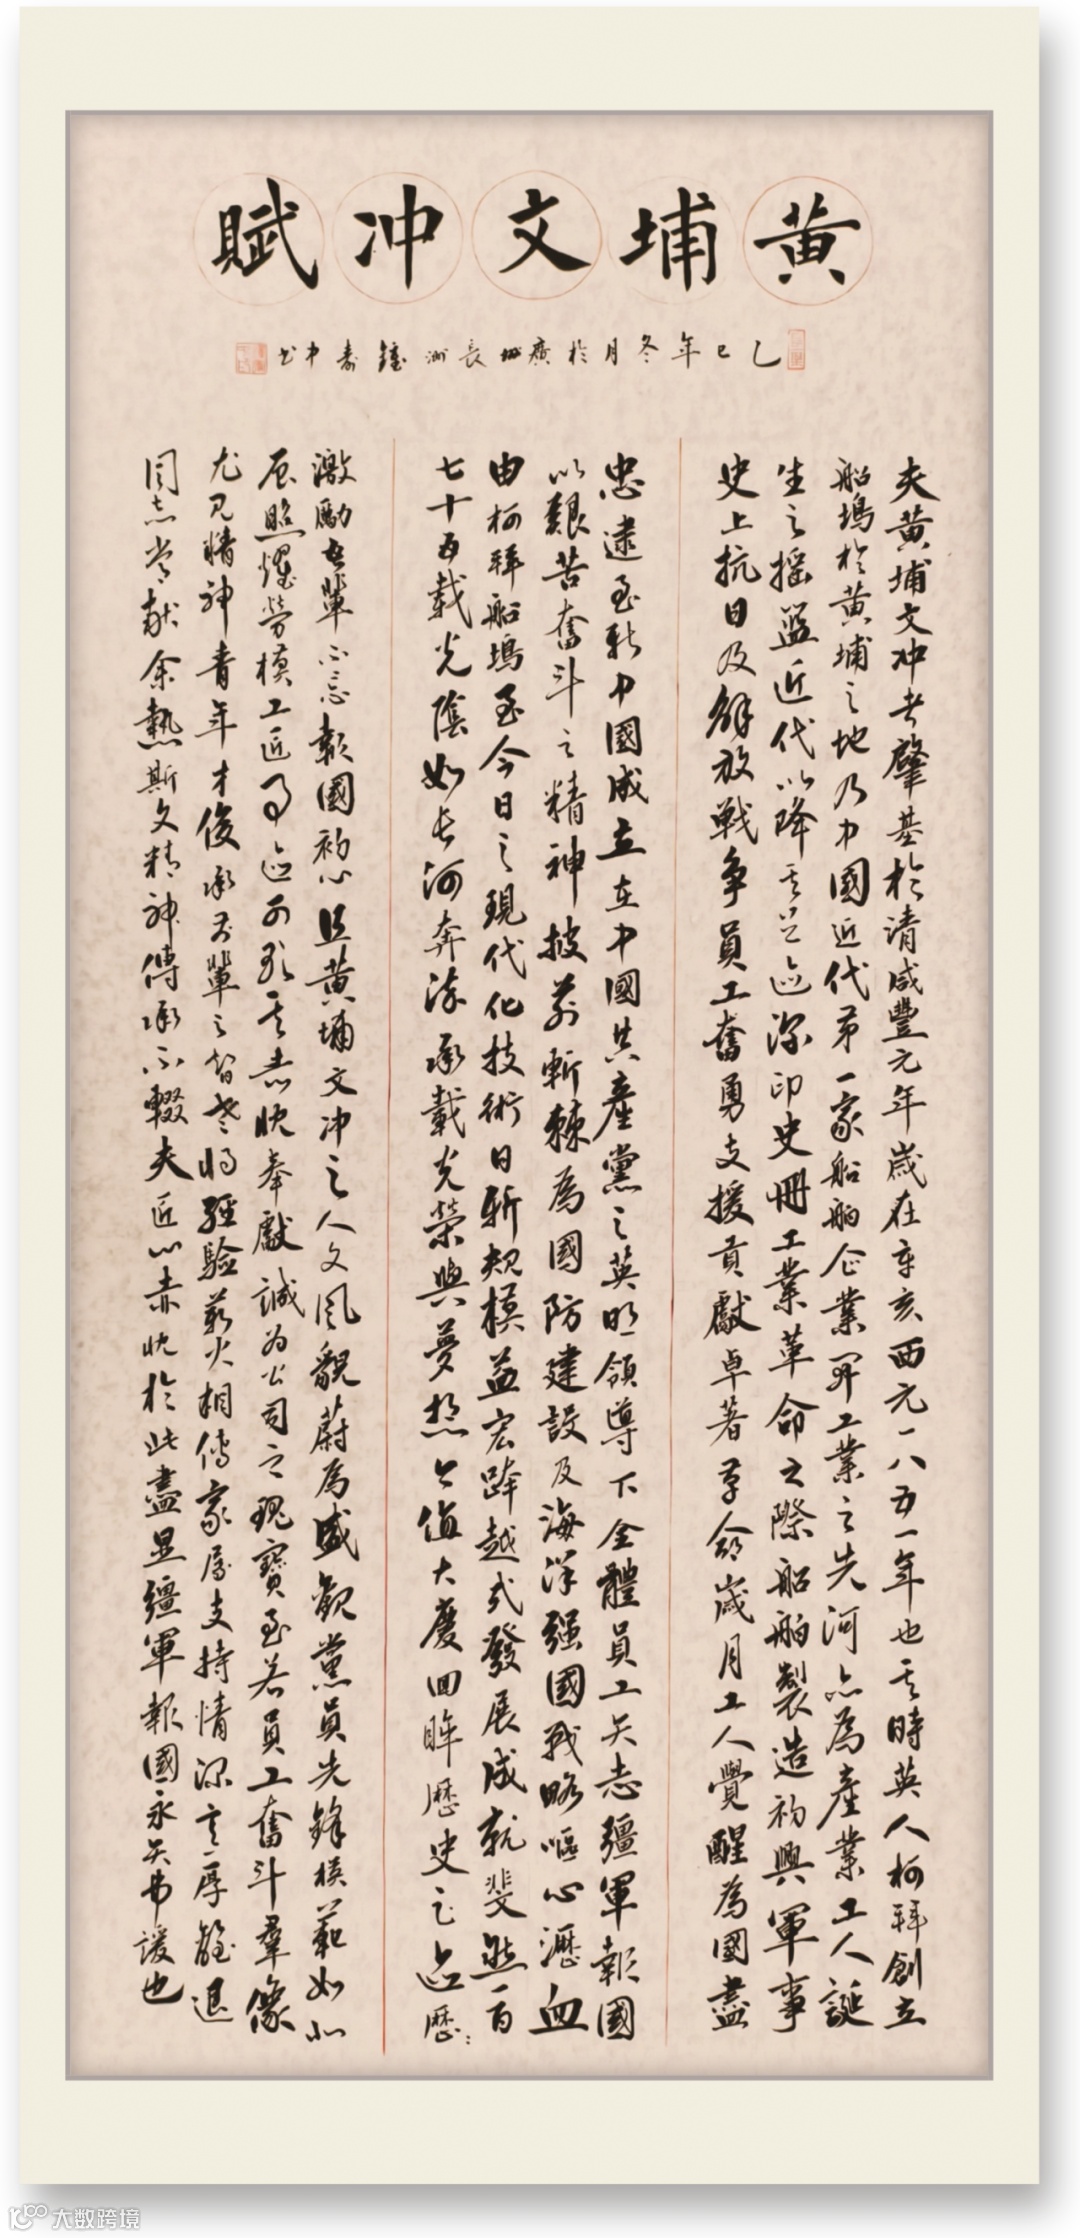 黄埔文冲賦
乙巳年冬月於廣州長洲 鐘壽中书
夫黄埔文冲者肇基於清咸豐元年歲在辛亥西元一八五一年也其時英人柯拜創立
船塢於黄埔之地乃中國近代第一家船舶企業開工業之先河亦為產業工人誕
生之摇籃近代以降其足迹深印史冊工業革命之際船舶製造初興軍事
史上抗日及解放戰争員工奮勇支援貢獻卓著革命歲月工人覺醒為國盡
忠逮至新中國成立在中國共産黨之英明領導下全體員工矢志疆軍報國
以艱苦奮斗之精神披荊斬棘為國防建設及海洋强國戰略嘔心瀝血
由柯拜船塢至今日之現代化技術日新規模益宏跨越式發展成就斐然一百
七十五載光陰如長河奔流承載光榮與夢想今值大慶回眸歷史之迹歷:
激勵吾輩不忘報國初心且黄埔文冲之人文風貌蔚為盛觀黨員先鋒模範如北
辰照燿勞模工匠事迹可歌其赤忱奉獻誠为公司之瑰寶至若員工奮斗羣像
尤見精神青年才俊承前輩之智老將經驗薪火相傳家属支持情深意厚離退
同志常献余熱斯文精神傳承不輟夫匠心赤忱於此盡显疆軍報國永矢弗諼也
大数跨境